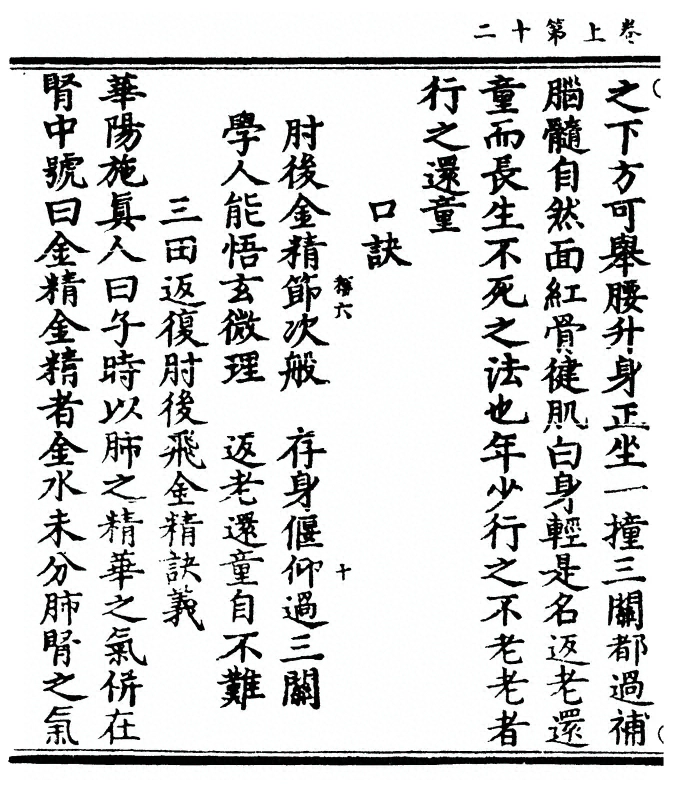 卷上第十二
之下方可舉腰升身正坐一撞三關都過補
腦髓自然面紅骨健肌白身輕是名返老還
童而長生不死之法也年少行之不老老者
行之還童
口訣
肘後金精節次般　存身偃仰過三關
學人能悟玄微理　返老還童自不難
三田返復肘後飛金精訣義
華陽施眞人曰子時以肺之精華之氣併在
腎中號曰金精金精者金水未分肺腎之氣
十